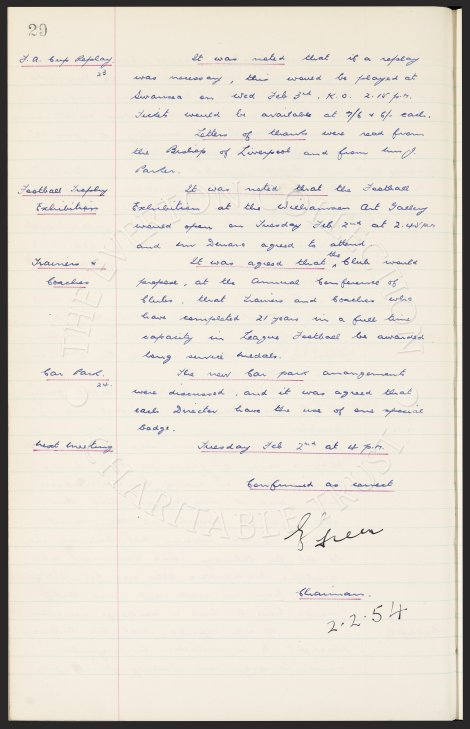 29
F.A. Cup Replay
23
It was noted that if a replay
was necessary, this would be played at
Swansea on Wed Feb 3rd. K.O. 2.15 p.m.
Tickets would be available at 7/6 & 6/- each.
Letters of thanks were read from
the Bishop of Liverpool and from Mr J.
Parker.
Football Trophy
Exhibition
It was noted that the Football
Exhibition at the Williamson Art Gallery
would open on Tuesday Feb 2nd at 2.45 p.m
and Mr Searle agreed to attend
Trainers &
Coaches
It was agreed that the Club would
propose, at the Annual Conference of
Clubs, that Trainers and Coaches who
have completed 21 years in a full time
capacity in League Football be awarded
long service medals.
Car Park.
24.
The new Car park arrangements
were discussed, and it was agreed that
each Director have the use of one special
badge.
Next Meeting
Tuesday Feb 2nd at 4 p.m.
Confirmed as correct
E Green
Chairman.
2.2.54
© THE EVERTON COLLECTION
CHARITABLE TRUST